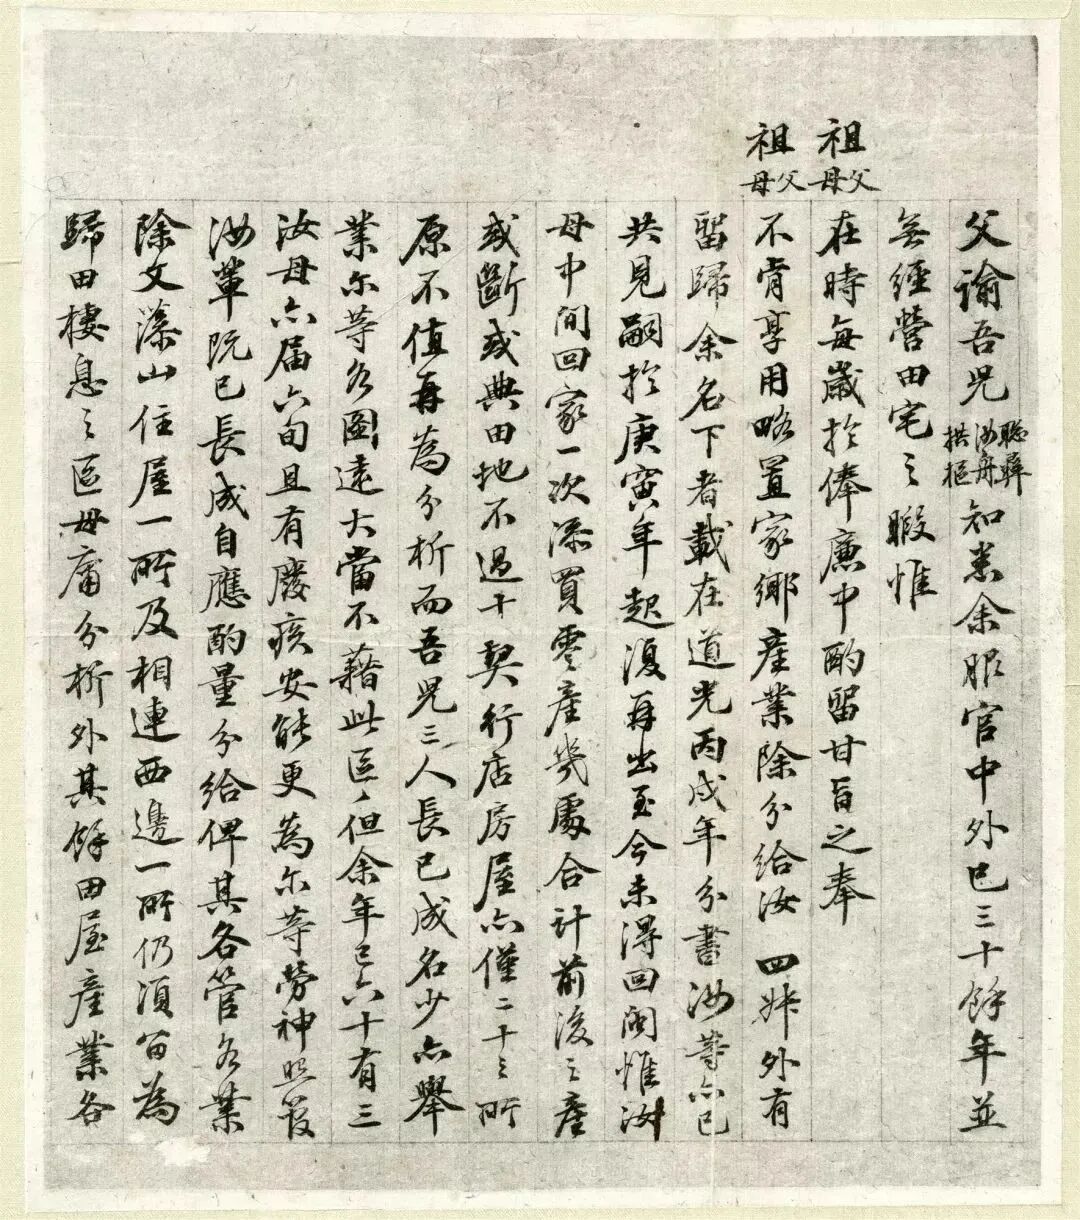 父諭吾兒聰彝汝舟拱樞知悉余服官中外已三十餘年並
無經營田宅之暇惟
祖父母在時每歲於俸廉中酌留甘旨之奉
祖父母不肯享用略置家鄉產業除分給汝四姊外有
留歸余名下者載在道光丙戌年分書汝等亦已
共見嗣於庚寅年起復再出至今未得回閩惟汝
母中間回家一次添買零產幾處合計前後之產
或斷或典田地不過十契行店房屋亦僅二十三所
原不值再為分析而吾兒三人長已成名少亦舉
業尔等各圖遠大當不藉此區々但余年已六十有三
汝母亦屆六旬且有廢疾安能更為尔等勞神照管
汝輩既已長成自應酌量分給俾其各管各業
除文藻山住屋一所及相連西邊一所仍須留為
歸田棲息之區毋庸分析外其餘田屋產業各